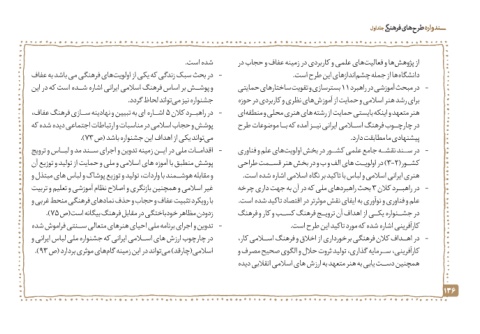 سند واره طرح‌های فرهنگی متداول
از پژوهش‌ها و فعالیت‌های علمی و کاربردی در زمینه عفاف و حجاب در
دانشگاه‌ها از جمله چشم‌اندازهای این طرح است.
- در مبحث آموزشی در راهبرد ۱۱ بسترسازی و تقویت ساختارهای حمایتی
برای رشد هنر اسلامی و حمایت از آموزش‌های نظری و کاربردی در حوزه
هنر متعهد و اینکه بایستی حمایت از رشته های هنری محلی و منطقه‌ای
در چارچوب فرهنگ اسلامی ایرانی نیز آمده که با موضوعات طرح
پیشنهادی ما مطابقت دارد.
- در سند نقشه جامع علمی کشور در بخش اولویت‌های علم و فناوری
کشور (۲-۳) در اولویت های الف و ب و در بخش هنر قسمت طراحی
هنری ایرانی اسلامی و لباس با تاکید بر نگاه اسلامی اشاره شده است.
- در راهبرد کلان ۳ بحث راهبردهای ملی که در آن به جهت داری چرخه
علم و فناوری و نوآوری به ایفای نقش موثرتر در اقتصاد تاکید شده است.
در جشنواره یکی از اهداف آن ترویج فرهنگ کسب و کار و فرهنگ
کارآفرینی اشاره شده که مورد تاکید این طرح است.
- در اهداف کلان فرهنگی برخورداری از اخلاق و فرهنگ اسلامی کار،
کارآفرینی، سرمایه گذاری، تولید ثروت حلال و الگوی صحیح مصرف و
همچنین دست یابی به هنر متعهد به ارزش های اسلامی انقلابی دیده
شده است.
- در بحث سبک زندگی که یکی از اولویت‌های فرهنگی می باشد به عفاف
و پوشش بر اساس فرهنگ اسلامی ایرانی اشاره شده است که در این
جشنواره نیز می‌تواند لحاظ گردد.
- در راهبرد کلان ۵ اشاره ای به تبیین و نهادینه سازی فرهنگ عفاف،
پوشش و حجاب اسلامی در مناسبات و ارتباطات اجتماعی دیده شده که
می‌تواند یکی از اهداف این جشنواره باشد (ص ۷۳).
- اقدامات ملی در این زمینه تدوین و اجرای سند مد و لباس و ترویج
پوشش منطبق با آموزه های اسلامی و ملی و حمایت از تولید و توزیع آن
و مقابله هوشمند با واردات، تولید و توزیع پوشاک و لباس های مبتذل و
غیر اسلامی و همچنین بازنگری و اصلاح نظام آموزشی و تعلیم و تربیت
با رویکرد تثبیت عفاف و حجاب و حذف نمادهای فرهنگی منحط غربی و
زدودن مظاهر خودباختگی در مقابل فرهنگ بیگانه است (ص ۷۵).
- تدوین و اجرای برنامه ملی احیای هنرهای متعالی سنتی فراموش شده
در چارچوب ارزش های اسلامی ایرانی که جشنواره ملی لباس ایرانی و
اسلامی (چارقد) می‌تواند در این زمینه گام‌های موثری بردارد (ص ۹۳).
۱۳۶